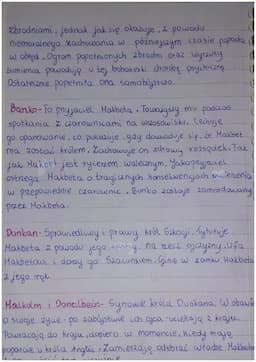 zbrodniami, jednak jak się okazuje, z powodu
niemoralnego zachowania w późniejszym czasie popada
w obłęd. Ogrom popełnionych zbrodni oraz wyrzuty
sumienia powodują u tej bohaterki chorobę psychiczną
Ostatecznie popełnia ona samobójstwo.
Banko - To przyjaciel Makbeta. Towarzyszy mu podczas
spotkania z czarownicami na wrzosowisku. Cechuje
go opanowanie, co pokazuje, gdy dowiaduje się, że Makbet
ma zostać królem. Zachowuje on zdrowy rozsądek. Tak
jak Makbet jest rycerzem walecznym. Jako przyjaciel
ostrzega Makbeta o tragicznych konsekwencjach
w przepowiednie czarownic. Banko zostaje zamordowany
przez Makbeta.
Dunkan - Sprawiedliwy i prawy król Szkocji.
Makbeta z powodu jego na rzecz ojczyzny. Ufa
Makbetowi i darzy go szacunkiem. Ginie w zamku Makbeta
z jego rąk.
Malkolm i Donalbein - Synowie króla Dunkana. W obawie
o swoje życie po zabójstwie ich ojca uciekają z kraju.
Powracają do kraju, dopiero w momencie, kiedy mają
poparcie u króla Anglii. Zamierzają odebrać władzę Makbetowi